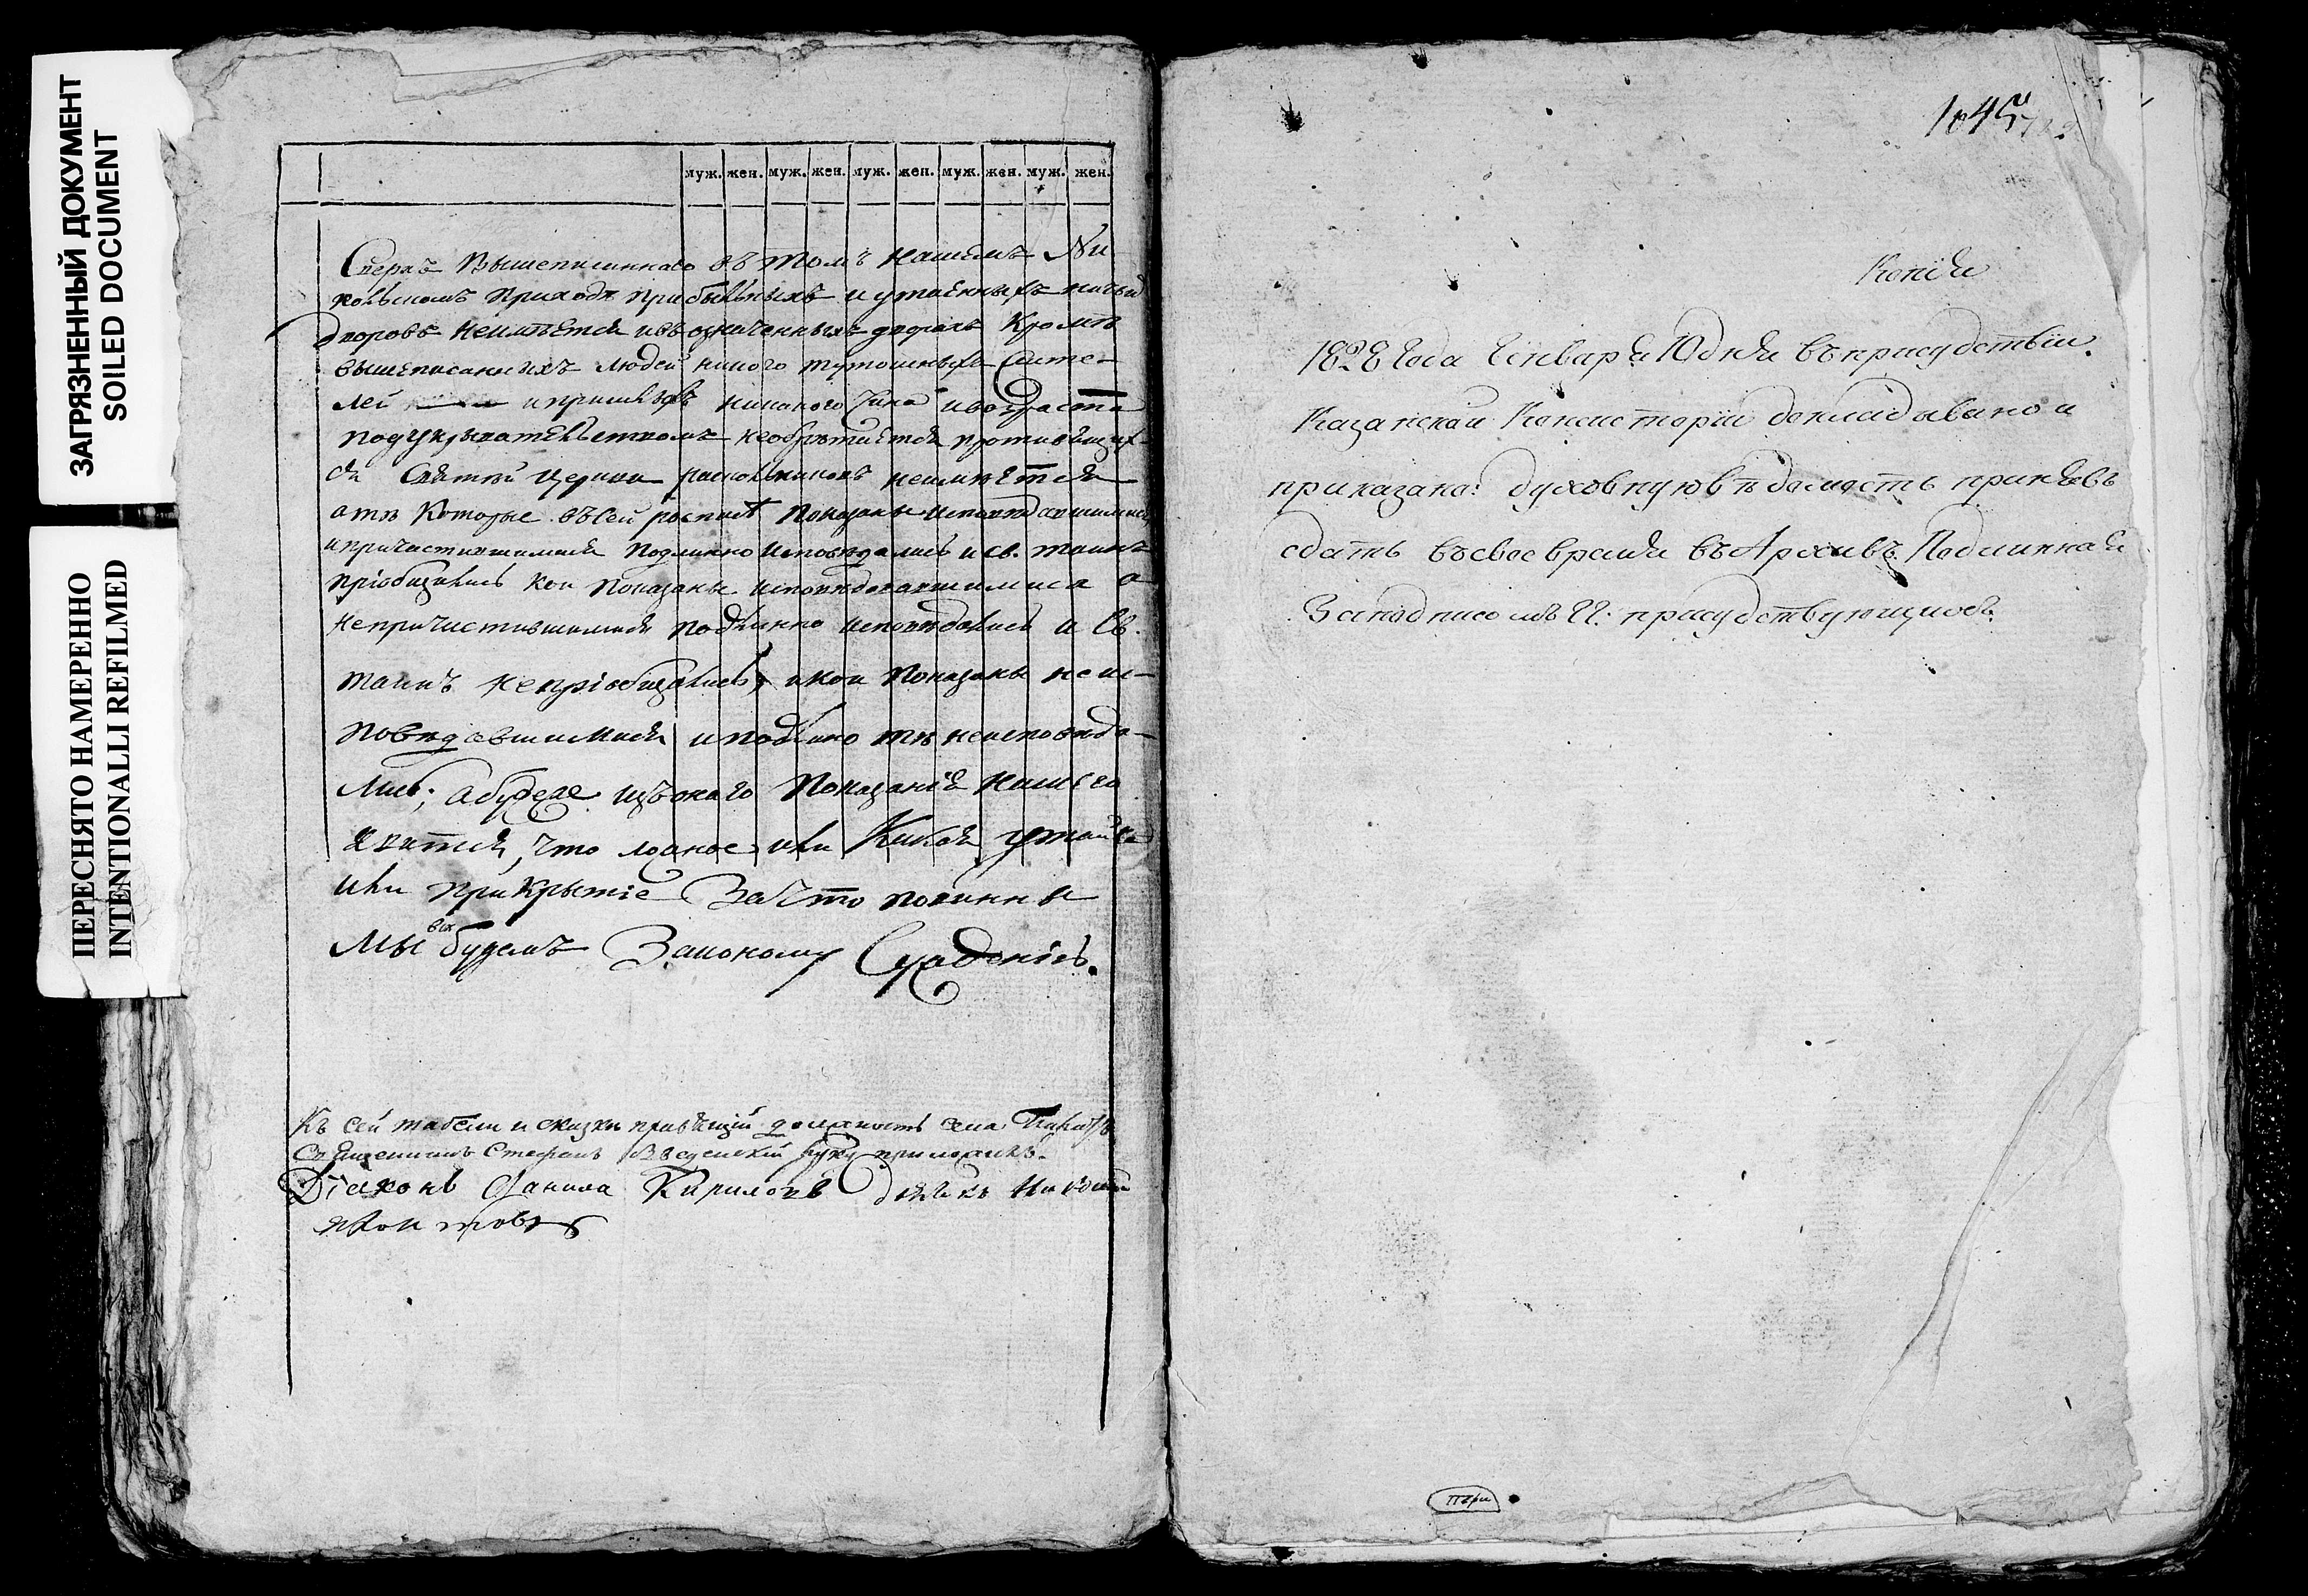 ЗАГРЯЗНЕННЫЙ ДОКУМЕНТ
SOILED DOCUMENT
ПЕРЕСНЯТО НАМЕРЕННО
INTENTIONALLI REFILMED
муж. жен. муж. жен. муж. жен. муж. жен. муж. жен.
Сверхъ вышеписаннаго въ томъ нашемъ Ни
кольскомъ приходѣ прибыльныхъ и утаенныхъ
дворовъ неимѣется изъ означенныхъ дворахъ кромѣ
вышеписанныхъ людей никого тутошныхъ жите-
лей и пришлыхъ никакого чина и возраста
подъ укрывательствомъ необрѣтается противящих-
ся Святѣй Церкви раскольниковъ неимѣется
а тѣ которые въ сей росписѣ показаны исповѣдавшимися
и причастившимися подлинно исповѣдались и св. таинъ
пріобщились кои показаны исповѣдовавшимися а
непричастившимися подлинно исповѣдались и Св.
таинъ непріобщались, и кои показаны неис-
повѣдавшимися и подлино тѣ неисповѣда-
лись; а буде изъ онаго показанія нашего
явится, что ложное или какая утайка
или прикрытіе за что повинны
мы всѣ будемъ законому суждению.
Къ сей табели и скаски правящій должность села
Священникъ Стефанъ Введенский руку приложилъ.
Діаконъ Данила Кириловъ дьячкъ
1045
Копія
1828 года Генваря 10 дня въ присудствіи
Казанской Консисторіи докладывано и
приказано: духовную вѣдомость принявъ
сдать въ свое время въ Архивъ. Подлинная
За подписомъ ГГ. присудствующихъ.